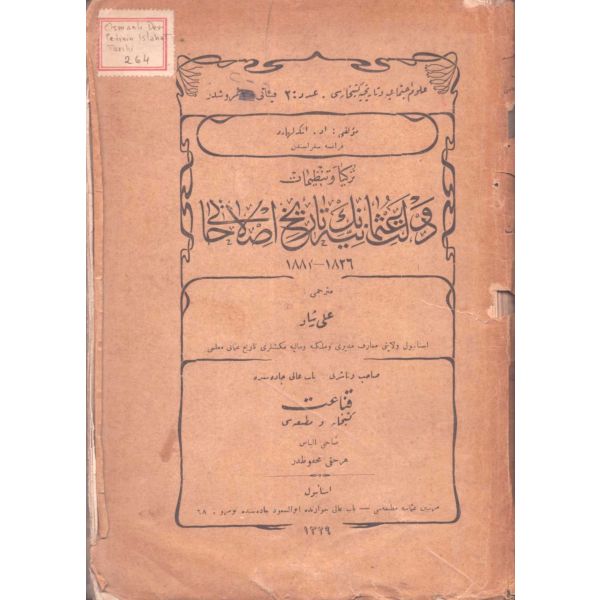 Osmanlı Dev-
letinin Islahat
Tarihi
264
علوم اجتماعیه و تاریخیه کتبخانه‌سی . عدد : ۲ فیئاتی غروشدر
مؤلفی : اد . انکلهارد
فرانسه سفراسندن
ترکیا و تنظیمات
دولت عثمانیه‌نك تاریخ اصلاحاتی
١٨٢٦—١٨٨٢
مترجمی :
علی رشاد
استانبول ولایتی معارف مدیری و ملکیه و مالیه مکتبلری تاریخ عثمانی معلمی
صاحب و ناشری . باب عالی جاده‌سنده
قناعت
کتبخانه و مطبعه‌سی
صاحبی الیاس
هر حقی محفوظدر
استانبول
مطبعه‌سی — باب عالی جوارنده ابوالسعود جاده‌سنده نومرو ، ٦٨